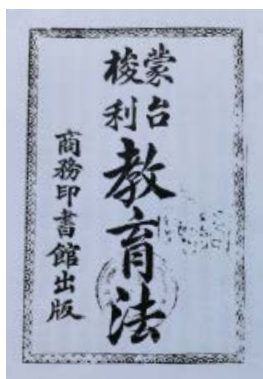 蒙台梭利
教育法
商務印書館出版